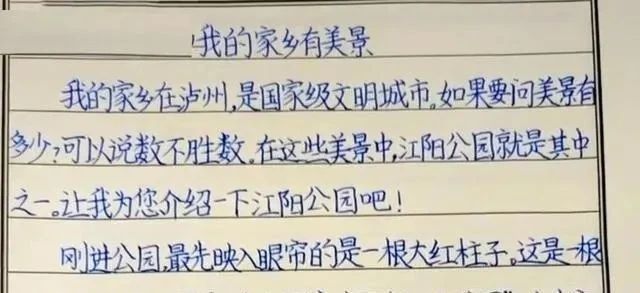 我的家乡有美景
我的家乡在泸州,是国家级文明城市。如果要问美景有
多少?可以说数不胜数。在这些美景中,江阳公园就是其中
之一。让我为您介绍一下江阳公园吧!
刚进公园,最先映入眼帘的是一根大红柱子。这是一根